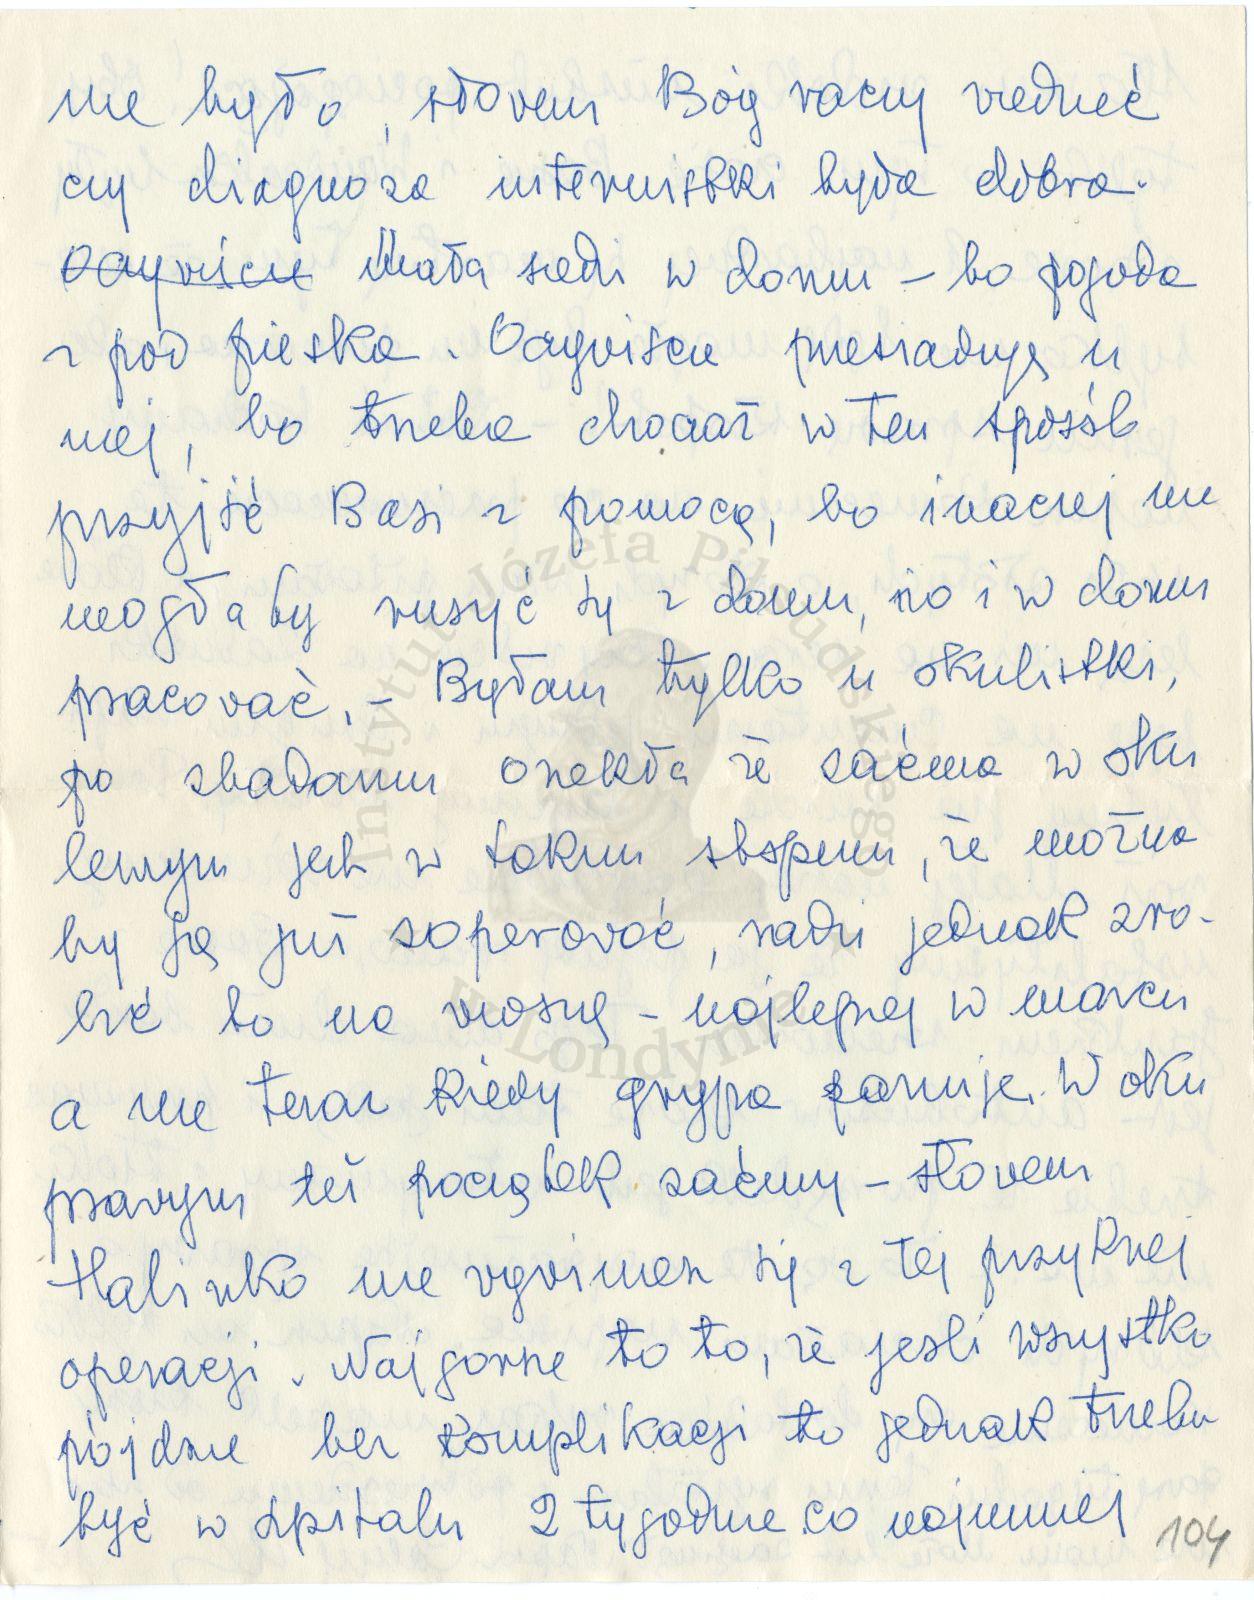 nie było, słowem Bóg raczy wiedzieć
czy diagnoza internistki była dobra.
~~Oczywiście~~ Mała siedzi w domu – bo pogoda
z pod pieska. Oczywiście przesiaduję u
niej, bo trzeba chociaż w ten sposób
przyjść Basi z pomocą, bo inaczej nie
mogłaby ruszyć się z domu, no i w domu
pracować. – Byłam tylko u okulistki,
po zbadaniu orzekła że zaćma w oku
lewym jest w takim stopniu, że można
by ją już zoperować, radzi jednak zro-
bić to na wiosnę – najlepiej w marcu
a nie teraz kiedy grypa panuje. W oku
prawym też początek zaćmy – słowem
Halinko nie wywinę się z tej przykrej
operacji. Najgorsze to to, że jeśli wszystko
pójdzie bez komplikacji to jednak trzeba
być w szpitalu 2 tygodnie co najmniej
104
Instytut Józefa Piłsudskiego
w Londynie